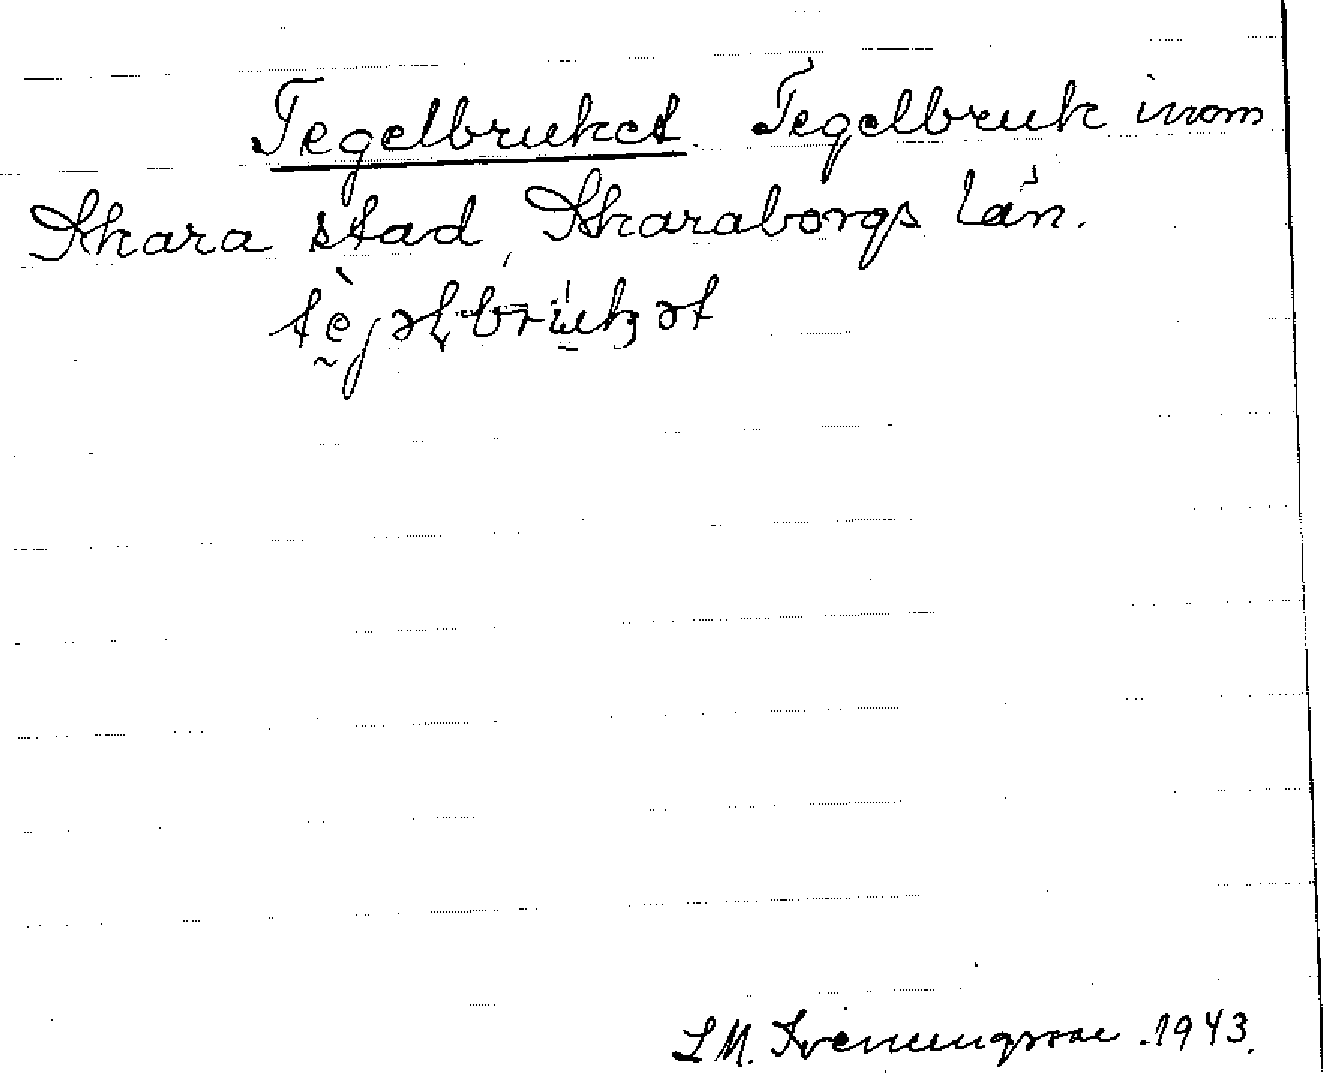 Tegelbruket. Tegelbruk inom
Skara stad, Skaraborgs län.
tḛ̀jəl-brʉkət
S M. Svenungsson. 1943.